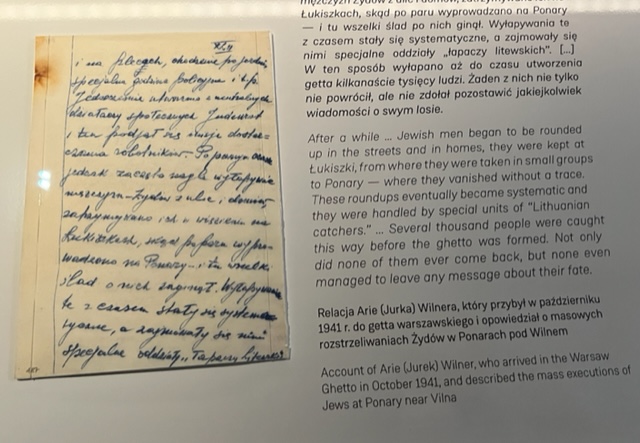 i na plecach, chodzenie po jezdni,
specjalne godziny policyjne i t.p.
Jednocześnie utworzono z neutralnych
działaczy społecznych Judenrat
i ten podjął się misji dostar-
czania robotników. Po pewnym czasie
jednak zaczęto nagle wyłapywać
mężczyzn-żydów z ulic i domów,
zatrzymywano ich w więzieniu na
Łukiszkach, skąd po paru wypro-
wadzono na Ponary – i tu wszelki
ślad o nich zaginął. Wyłapywania
te z czasem stały się systema-
tyczne, a zajmowały się nimi
specjalne oddziały „łapaczy
mężczyzn Żydów z ulic i domów,
Łukiszkach, skąd po paru wyprowadzano na Ponary
— i tu wszelki ślad po nich ginął. Wyłapywania te
z czasem stały się systematyczne, a zajmowały się
nimi specjalne oddziały „łapaczy litewskich”. [...]
W ten sposób wyłapano aż do czasu utworzenia
getta kilkanaście tysięcy ludzi. Żaden z nich nie tylko
nie powrócił, ale nie zdołał pozostawić jakiejkolwiek
wiadomości o swym losie.
After a while ... Jewish men began to be rounded
up in the streets and in homes, they were kept at
Łukiszki, from where they were taken in small groups
to Ponary — where they vanished without a trace.
These roundups eventually became systematic and
they were handled by special units of “Lithuanian
catchers.” ... Several thousand people were caught
this way before the ghetto was formed. Not only
did none of them ever come back, but none even
managed to leave any message about their fate.
Relacja Arie (Jurka) Wilnera, który przybył w październiku
1941 r. do getta warszawskiego i opowiedział o masowych
rozstrzeliwaniach Żydów w Ponarach pod Wilnem
Account of Arie (Jurek) Wilner, who arrived in the Warsaw
Ghetto in October 1941, and described the mass executions of
Jews at Ponary near Vilna